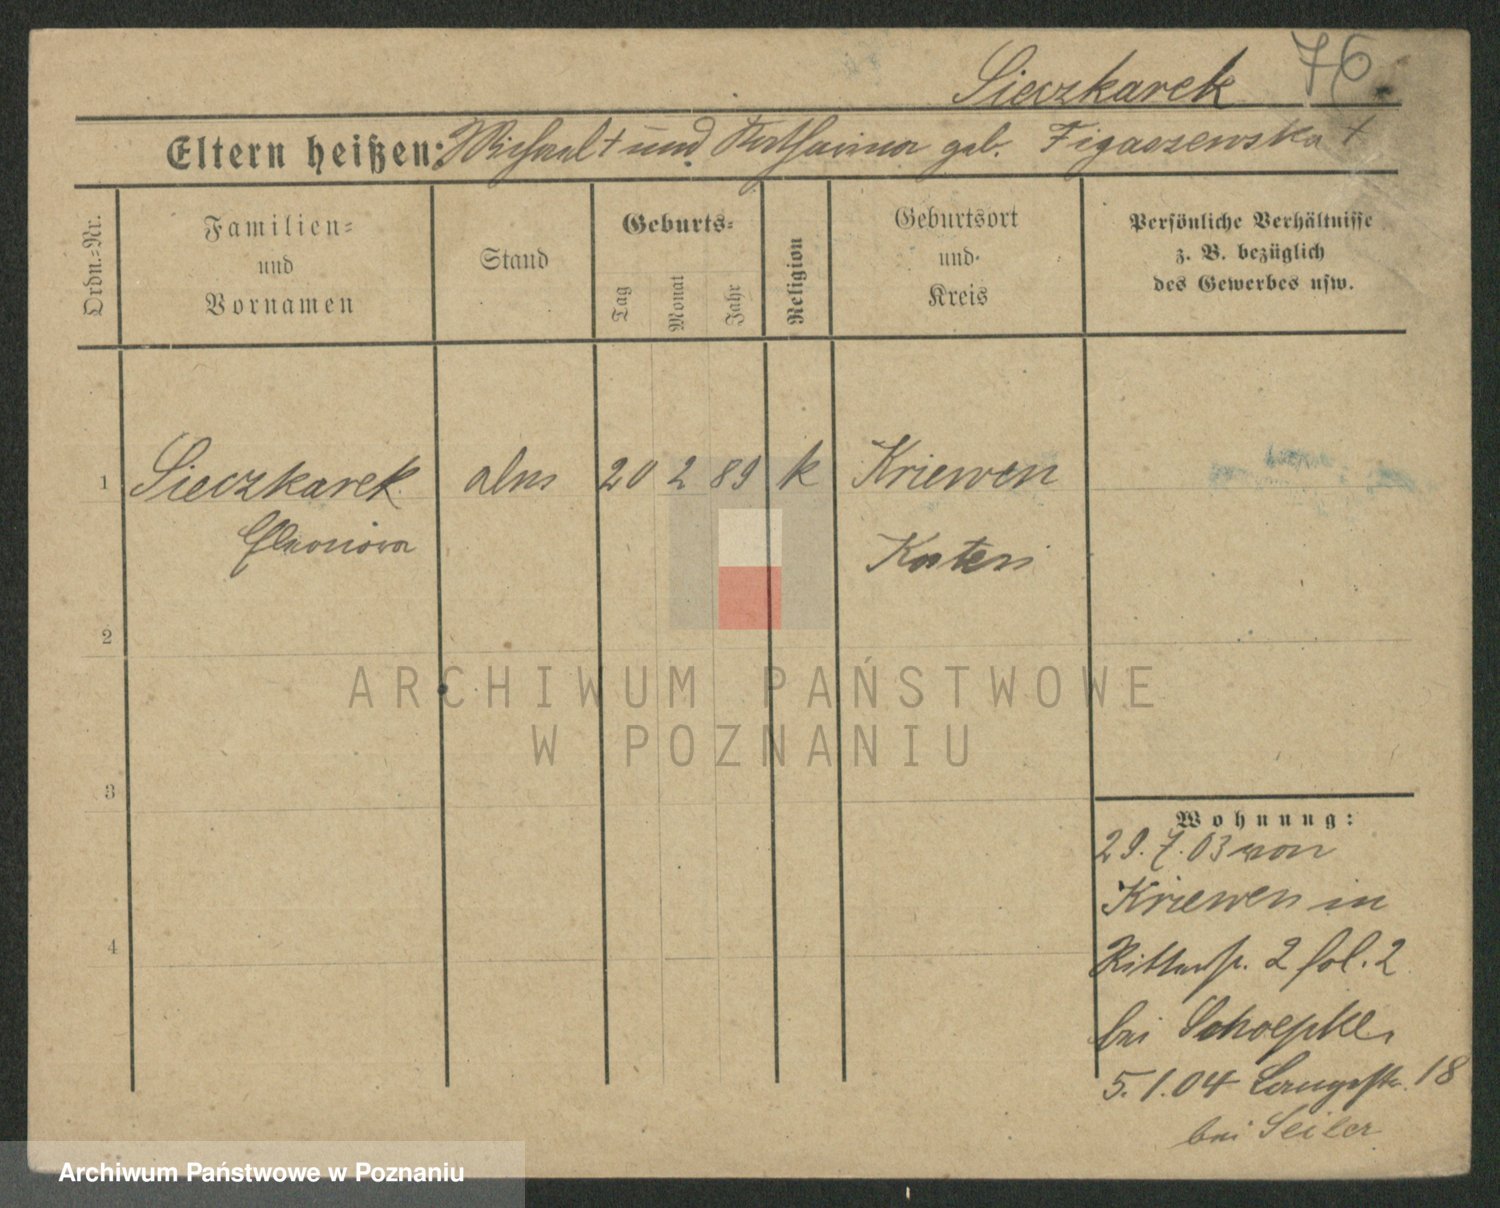 Sieczkarek 76
Eltern heißen: Michael † und Katharina geb. Figaszewska †
Ordn.-Nr.
Familien-
und
Vornamen
Stand
Geburts-
Tag
Monat
Jahr
Religion
Geburtsort
und
Kreis
Persönliche Verhältnisse
z. B. bezüglich
des Gewerbes usw.
1 Sieczkarek 20 2 89 k Kriewen
Eleonora Kosten
2
3
4
Wohnung:
29.7.03 von
Kriewen in
Ritterstr. 2 fol. 2
bei Schoepke,
5.1.04 Langestr. 18
bei Seiler
ARCHIWUM PAŃSTWOWE
W POZNANIU
Archiwum Państwowe w Poznaniu